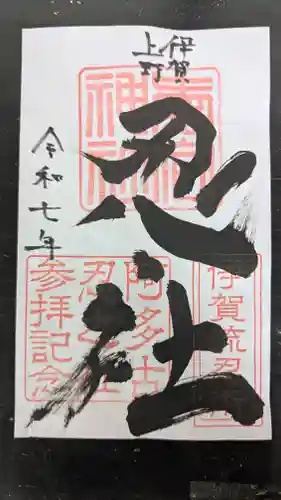 伊賀
上野
忍社
令和七年
伊賀流忍
阿多古
忍之社
参拝記念